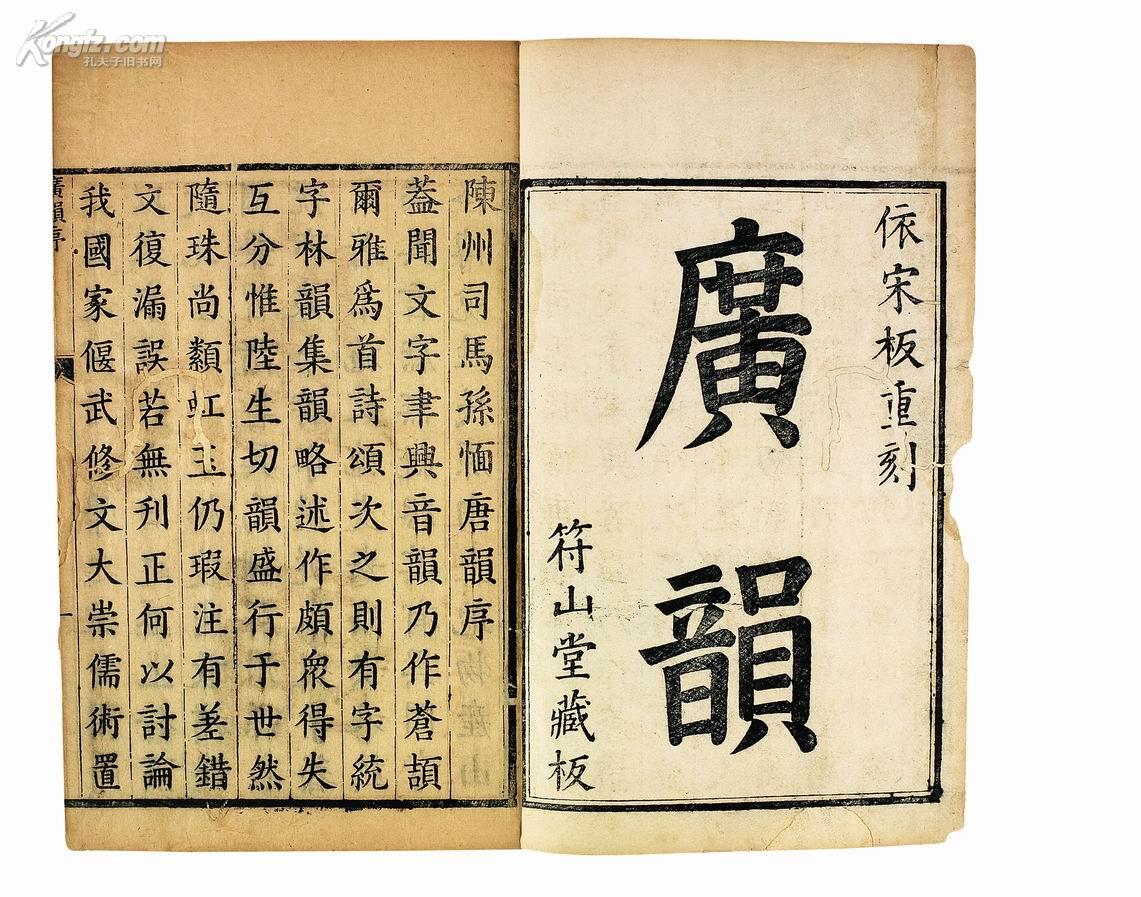 依宋板重刻
廣韻
符山堂藏板
陳州司馬孫愐唐韻序
葢聞文字聿興音韻乃作蒼頡
爾雅爲首詩頌次之則有字統
字林韻集韻略述作頗衆得失
互分惟陸生切韻盛行于世然
隨珠尚纇虹玉仍瑕注有差錯
文復漏誤若無刋正何以討論
我國家偃武修文大崇儒術置
廣韻序
一
Kongfz.com
孔夫子旧书网